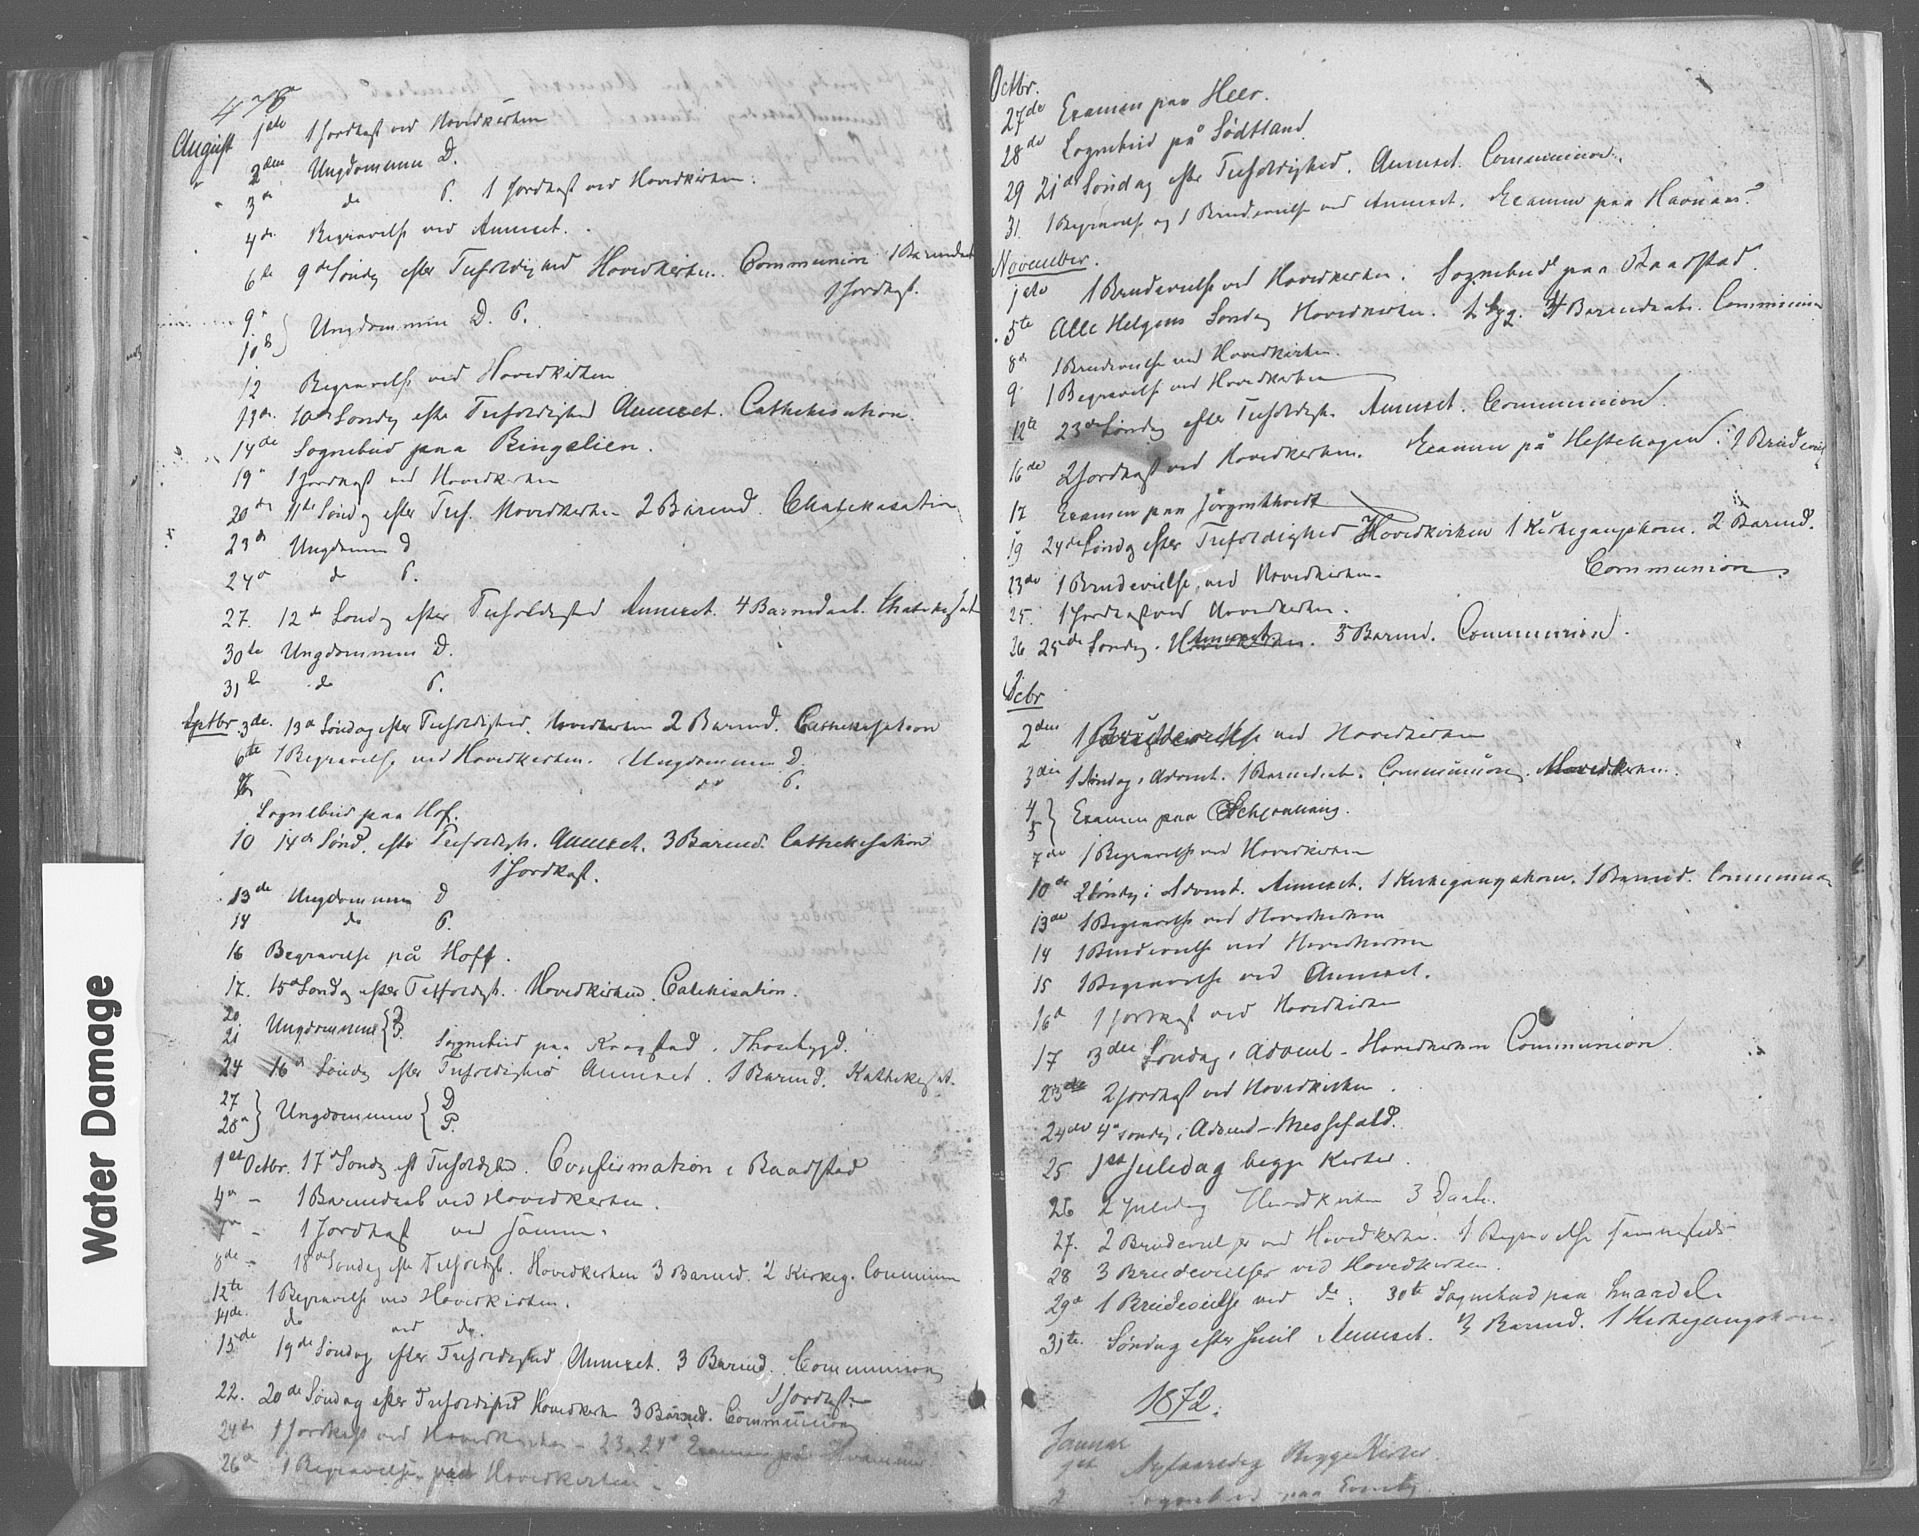 478
August 1ste 1 Jordkast ved Hovedkirken
2den Ungdommen D.
3 do P. 1 Jordkast ved Hovedkirken.
4de Begravelse ved Annexet.
6te 9de Søndag efter Trefoldighed Hovedkirken. Communion 1 Barnedaab
1 Jordkast.
9
10 } Ungdommen D. P.
12 Begravelse ved Hovedkirken
13de 10de Søndag efter Trefoldighed Annexet. Cathekisation.
14de Sognebud paa Ringelien.
19 1 Jordkast ved Hovedkirken
20de 11te Søndag efter Tref. Hovedkirken 2 Barned. Chatekisation
23de Ungdommen D
24 do P.
27. 12de Søndag efter Trefoldighed Annexet. 4 Barnedaab.
30te Ungdommen D.
31te do P.
Septbr. 3de. 13de Søndag efter Trefoldighed. Hovedkirken 2 Barned. Cathekisation
6te 1 Begravelse ved Hovedkirken. Ungdommen D.
do P.
Sognebud paa Hof.
10 14de Sønd. efter Trefoldigh. Annexet. 3 Barned. Cathekisation
1 Jordkast.
13de Ungdommen D
14 do P.
16 Begravelse på Hoff.
17. 15de Søndag efter Trefoldigh. Hovedkirken. Catekisation.
20
21 Ungdommen { D P. Sognebud paa Kragstad. Thorebygd.
24 16de Søndag efter Trefoldighed Annexet. 1 Barned. Kathekisat.
27
28 } Ungdommen { D P.
1ste Octbr. 17de Søndag eft Trefoldighed. Confirmation i Baadstad
4de – 1 Barnedaab ved Hovedkirken.
7de – 1 Jordkast ved Samme.
8de – 18de Søndag eft Trefoldigh. Hovedkirken 3 Barned. 2 Kirkeg. Communion
12te 1 Begravelse ved Hovedkirken.
14de. do ved do.
15de 19de Søndag efter Trefoldighed Annexet. 3 Barned. Communion
1 Jordkast
22. 20de Søndag efter Trefoldighed Hovedkirken 3 Barned. Communion
24de 1 Jordkast ved Hovedkirken – 23 24 Examen på
26 1 Begravelse ved Hovedkirken.
Octbr.
27de Examen paa Heer.
28de Sognebud på Sødtland.
29 21de Søndag efter Trefoldighed. Annexet. Communion.
31. 1 Begravelse og 1 Brudevielse ved Annexet. Examen paa
November.
1ste 1 Brudevielse ved Hovedkirken. Sognebud paa Baadstad.
5te Alle Helgens Søndag Hovedkirken. Barnedaab. Communion
8de 1 Brudevielse ved Hovedkirken.
9 1 Begravelse ved Hovedkirken
12te 23de Søndag efter Trefoldigh. Annexet. Communion.
16de 2 Jordkast ved Hovedkirken. Examen på Hestehagen. 1 Brudeviel
17 Examen paa Jørgentvedt
19 24de Søndag efter Trefoldighed Hovedkirken 1 Kirkegangskone. 2 Barned.
Communion.
23de 1 Brudevielse ved Hovedkirken.
25. 1 Jordkast ved Hovedkirken.
26 25de Søndag. Annexet Hovedkirken. 3 Barned. Communion.
Dcbr
2den 1 Brudevielse ved Hovedkirken
3die 1 Søndag i Advent. 1 Barnedaab. Communion. Hovedkirken.
4
5 } Examen paa
7de 1 Begravelse ved Hovedkirken
10de 2 Søndag i Advent. Annexet. 1 Kirkegangskone. 1 Barned. Communion
13de 1 Begravelse ved Hovedkirken
14 1 Brudevielse ved Hovedkirken
15 1 Begravelse ved Annexet.
16de 1 Jordkast ved Hovedkirken
17 3die Søndag i Advent – Hovedkirken Communion.
23de 2 Jordkast ved Hovedkirken.
24de 4de Søndag i Advend – Messefald.
25. 1ste Juledag begge Kirker.
26 2 Juledag Hovedkirken 3 Daab.
27. 2 Brudevielser ved Hovedkirken. 1 Begravelse sammesteds
28 3 Brudevielser ved Hovedkirken.
29de 1 Brudevielse ved do. 30te Sognebud paa
31te. Søndag efter Juul Annexet. 3 Barned. 1 Kirkegangskone.
1872.
Januar
1ste Nytaarsdag Begge Kirker.
2 Sognebud paa
Water Damage